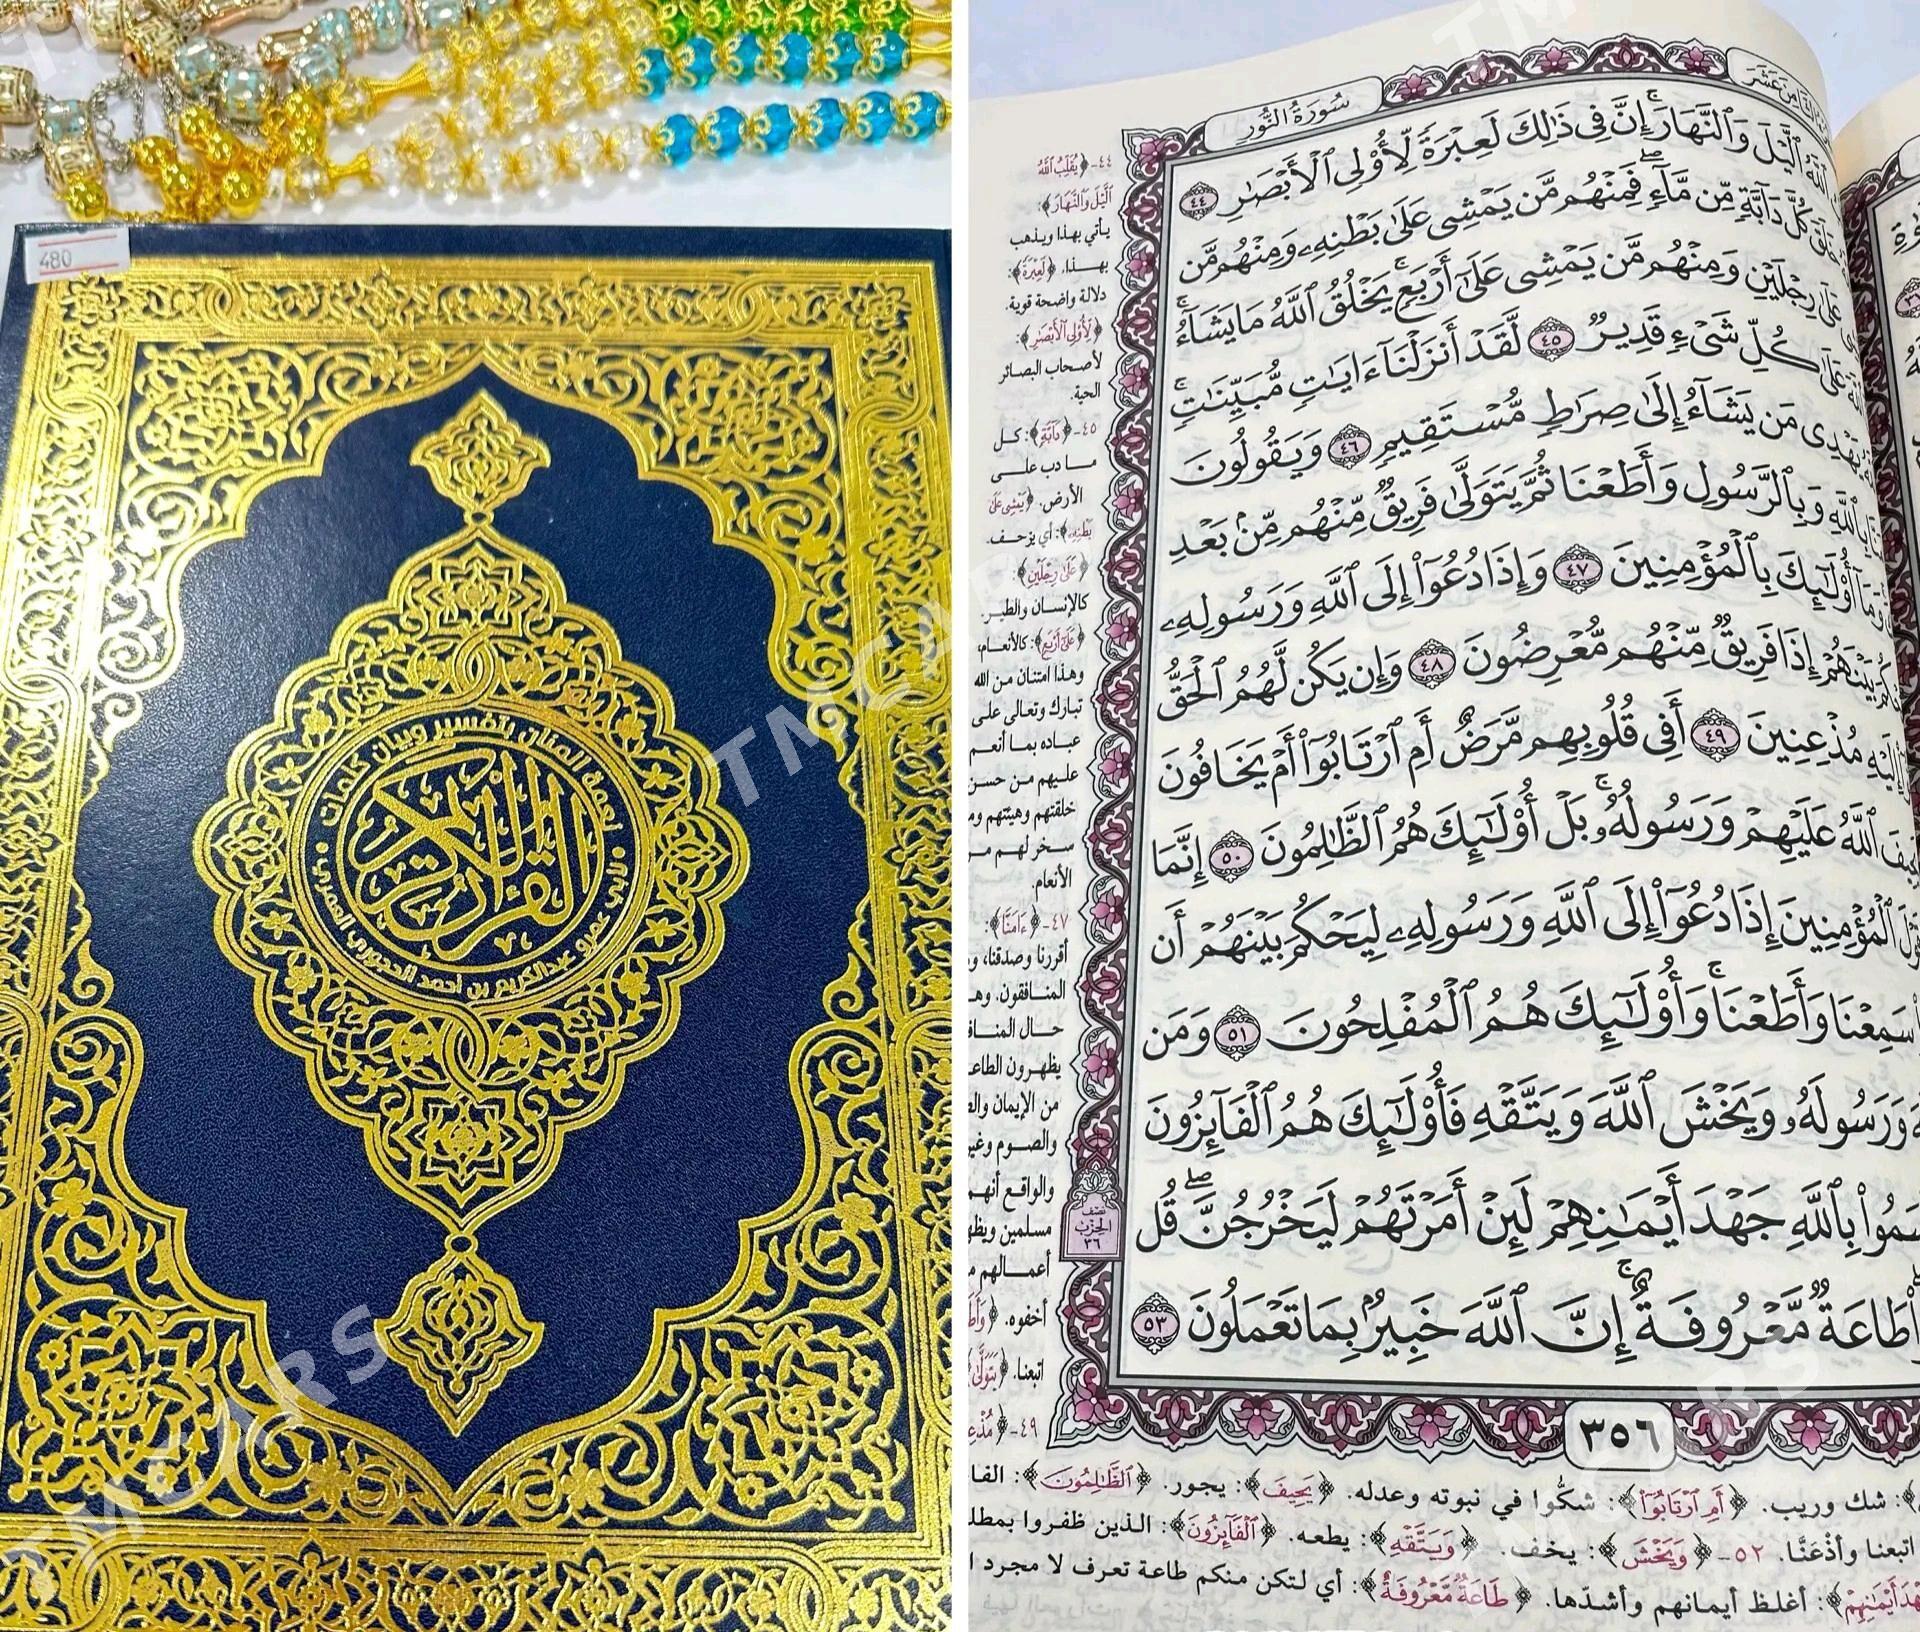 480
نعمة المنان بتفسير وبيان كلمات
القرآن الكريم
لأبي عمرو عبدالكريم بن أحمد الحجوري العمري
سُورَةُ النُّورِ
ٱللَّهُ ٱلَّيْلَ وَٱلنَّهَارَ ۚ إِنَّ فِى ذَٰلِكَ لَعِبْرَةً لِّأُو۟لِى ٱلْأَبْصَٰرِ ٤٤
كُلَّ دَآبَّةٍ مِّن مَّآءٍ ۖ فَمِنْهُم مَّن يَمْشِى عَلَىٰ بَطْنِهِۦ وَمِنْهُم مَّن
عَلَىٰ رِجْلَيْنِ وَمِنْهُم مَّن يَمْشِى عَلَىٰٓ أَرْبَعٍ ۚ يَخْلُقُ ٱللَّهُ مَا يَشَآءُ ۚ
عَلَىٰ كُلِّ شَىْءٍ قَدِيرٌ ٤٥ لَّقَدْ أَنزَلْنَآ ءَايَٰتٍ مُّبَيِّنَٰتٍ ۚ
يَهْدِى مَن يَشَآءُ إِلَىٰ صِرَٰطٍ مُّسْتَقِيمٍ ٤٦ وَيَقُولُونَ
وَبِٱلرَّسُولِ وَأَطَعْنَا ثُمَّ يَتَوَلَّىٰ فَرِيقٌ مِّنْهُم مِّنۢ بَعْدِ
أُو۟لَٰٓئِكَ بِٱلْمُؤْمِنِينَ ٤٧ وَإِذَا دُعُوٓا۟ إِلَى ٱللَّهِ وَرَسُولِهِۦ
بَيْنَهُمْ إِذَا فَرِيقٌ مِّنْهُم مُّعْرِضُونَ ٤٨ وَإِن يَكُن لَّهُمُ ٱلْحَقُّ
إِلَيْهِ مُذْعِنِينَ ٤٩ أَفِى قُلُوبِهِم مَّرَضٌ أَمِ ٱرْتَابُوٓا۟ أَمْ يَخَافُونَ
ٱللَّهُ عَلَيْهِمْ وَرَسُولُهُۥ ۚ بَلْ أُو۟لَٰٓئِكَ هُمُ ٱلظَّٰلِمُونَ ٥٠ إِنَّمَا
ٱلْمُؤْمِنِينَ إِذَا دُعُوٓا۟ إِلَى ٱللَّهِ وَرَسُولِهِۦ لِيَحْكُمَ بَيْنَهُمْ أَن
سَمِعْنَا وَأَطَعْنَا ۚ وَأُو۟لَٰٓئِكَ هُمُ ٱلْمُفْلِحُونَ ٥١ وَمَن
وَرَسُولَهُۥ وَيَخْشَ ٱللَّهَ وَيَتَّقْهِ فَأُو۟لَٰٓئِكَ هُمُ ٱلْفَآئِزُونَ
بِٱللَّهِ جَهْدَ أَيْمَٰنِهِمْ لَئِنْ أَمَرْتَهُمْ لَيَخْرُجُنَّ ۖ قُل
طَاعَةٌ مَّعْرُوفَةٌ ۚ إِنَّ ٱللَّهَ خَبِيرٌۢ بِمَا تَعْمَلُونَ ٥٣
٤٤- ﴿يُقَلِّبُ ٱللَّهُ
ٱلَّيْلَ وَٱلنَّهَارَ﴾:
يأتي بهذا ويذهب
بهذا. ﴿لَعِبْرَةً﴾:
دلالة واضحة قوية.
﴿لِّأُو۟لِى ٱلْأَبْصَٰرِ﴾:
لأصحاب البصائر
الحية.
٤٥- ﴿دَآبَّةٍ﴾: كل
ما دب على
الأرض. ﴿يَمْشِى عَلَىٰ
بَطْنِهِۦ﴾: أي يزحف.
﴿عَلَىٰ رِجْلَيْنِ﴾:
كالإنسان والطير.
﴿عَلَىٰٓ أَرْبَعٍ﴾: كالأنعام،
وهذا امتنان من الله
تبارك وتعالى على
عباده بما أنعم
عليهم من حسن
خلقتهم وهيئتهم
سخر لهم
الأنعام.
٤٧- ﴿ءَامَنَّا﴾:
أقررنا وصدقنا،
المنافقون.
حال
يظهرون
من الإيمان
والصوم
والواقع أنهم
مسلمين
أعمالهم
أخفوه.
اتبعنا.
٤٩-
نصف
الحزب
٣٦
٣٥٦
شك وريب. ﴿أَمِ ٱرْتَابُوٓا۟﴾: شكُّوا في نبوته وعدله. ﴿يَحِيفَ﴾: يجور. ﴿ٱلظَّٰلِمُونَ﴾:
اتبعنا وأذْعَنَّا. ٥٢- ﴿وَيَخْشَ﴾: يخف. ﴿وَيَتَّقْهِ﴾: يطعه. ﴿ٱلْفَآئِزُونَ﴾: الذين ظفروا
أَيْمَٰنِهِمْ﴾: أغلظ أيمانهم وأشدّها. ﴿طَاعَةٌ مَّعْرُوفَةٌ﴾: أي لتكن منكم طاعة تعرف لا مجرد
TMCARS